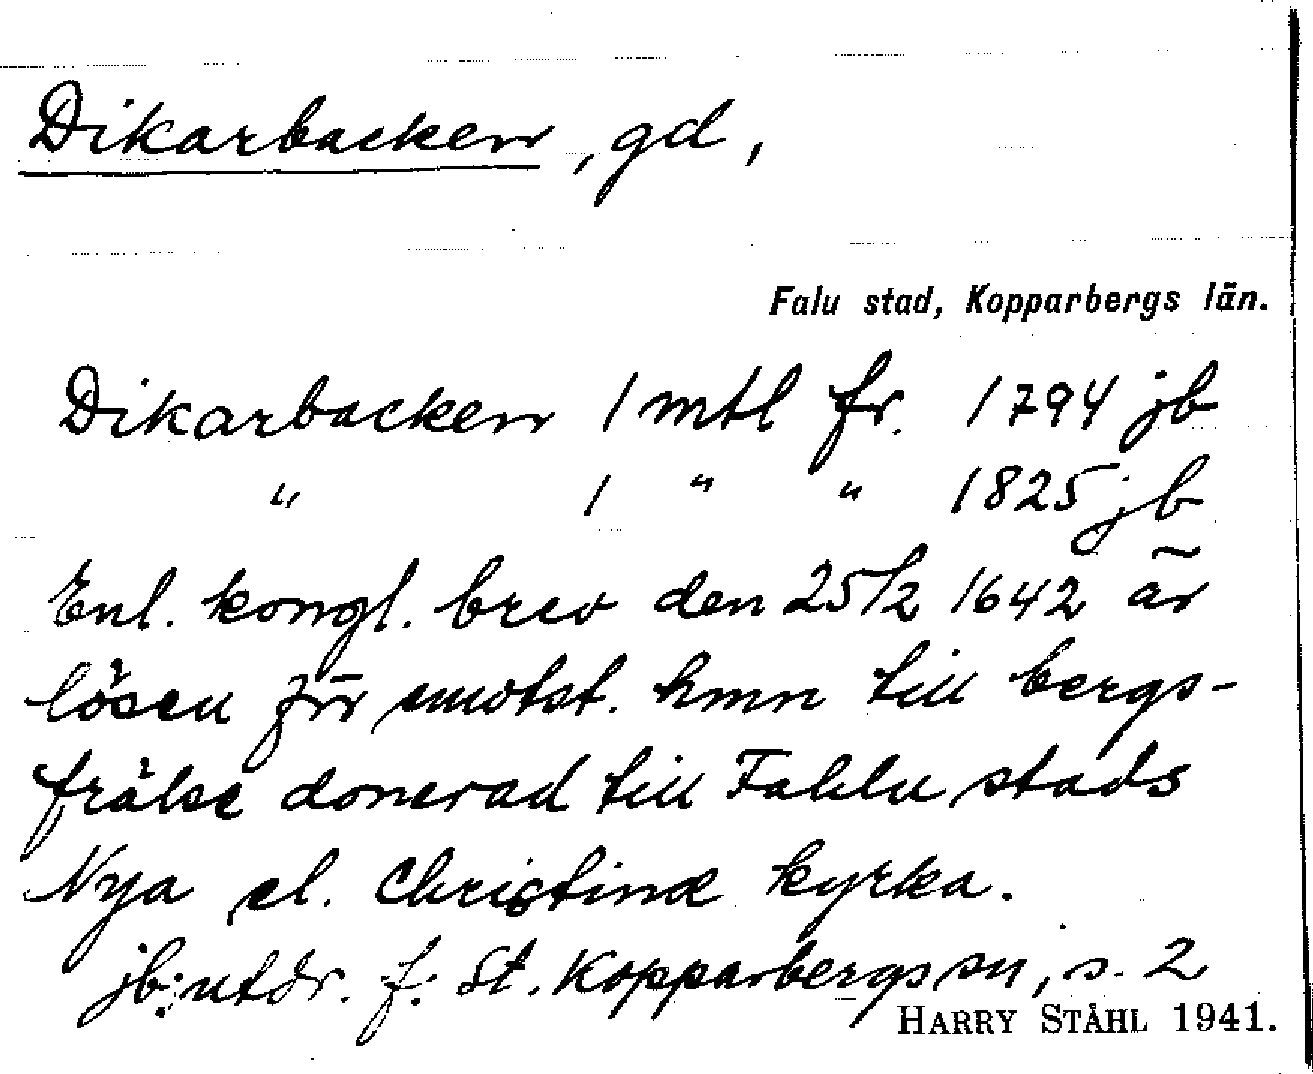 Dikarbacken, gd,
Falu stad, Kopparbergs län.
Dikarbacken 1 mtl fr. 1794 jb
" 1 " " 1825 jb
Enl. kongl. brev den 25/2 1642 är
lösen för motst. hmn till bergs-
frälse donerad till Fahlu stads
Nya el. Christinæ kyrka.
jb:utdr. f. St. Kopparbergs sn, s. 2
HARRY STÅHL 1941.